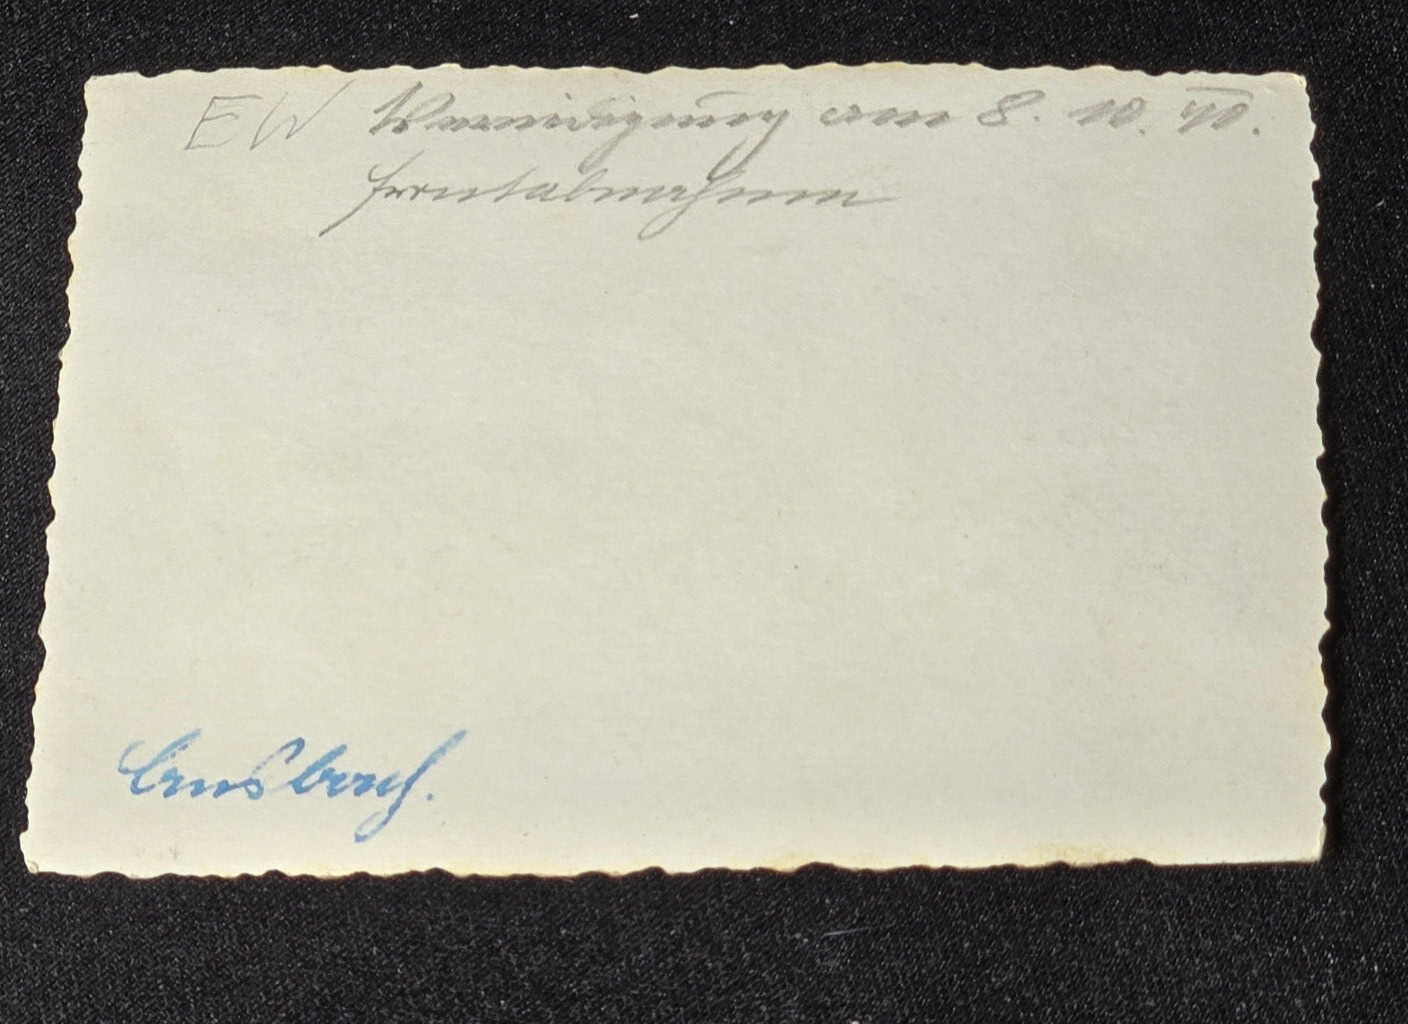 EW Vereidigung am 8. 10. 40.
Frontabnahme
Ansbach.